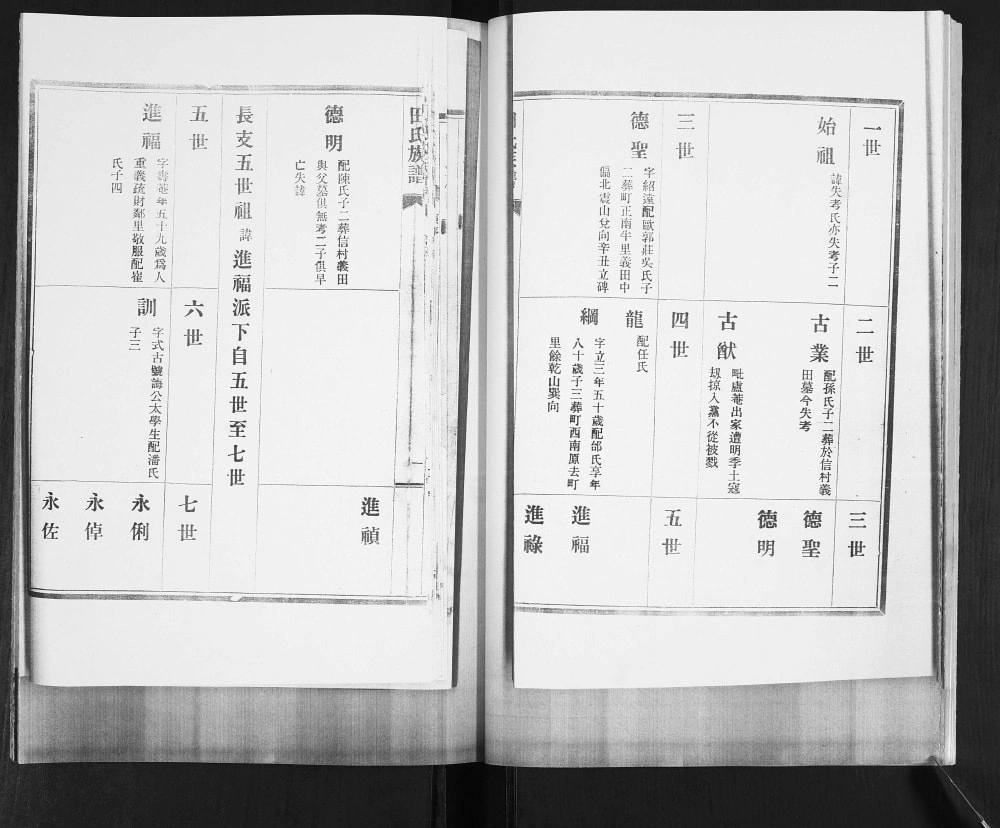 一世
始祖
諱失考氏亦失考子二
二世
古業
配孫氏子二葬於信村義
田墓今失考
古猷
毗盧菴出家遭明季土寇
刼掠入黨不從被戮
三世
德聖
德明
三世
德聖
字紹遠配歐郭莊吳氏子
二葬町正南半里義田中
偏北震山兌向辛丑立碑
四世
龍
配任氏
綱
字立三年五十歲配邰氏享年
八十歲子三葬町西南原去町
里餘乾山巽向
五世
進福
進祿
田氏族譜
一
進禎
德明
配陳氏子二葬信村義田
與父墓俱無考二子俱早
亡失諱
長支五世祖諱進福派下自五世至七世
五世
進福
字壽菴年五十九歲爲人
重義疏財鄰里敬服配崔
氏子四
六世
訓
字式古號誨公太學生配潘氏
子三
七世
永俐
永倬
永佐